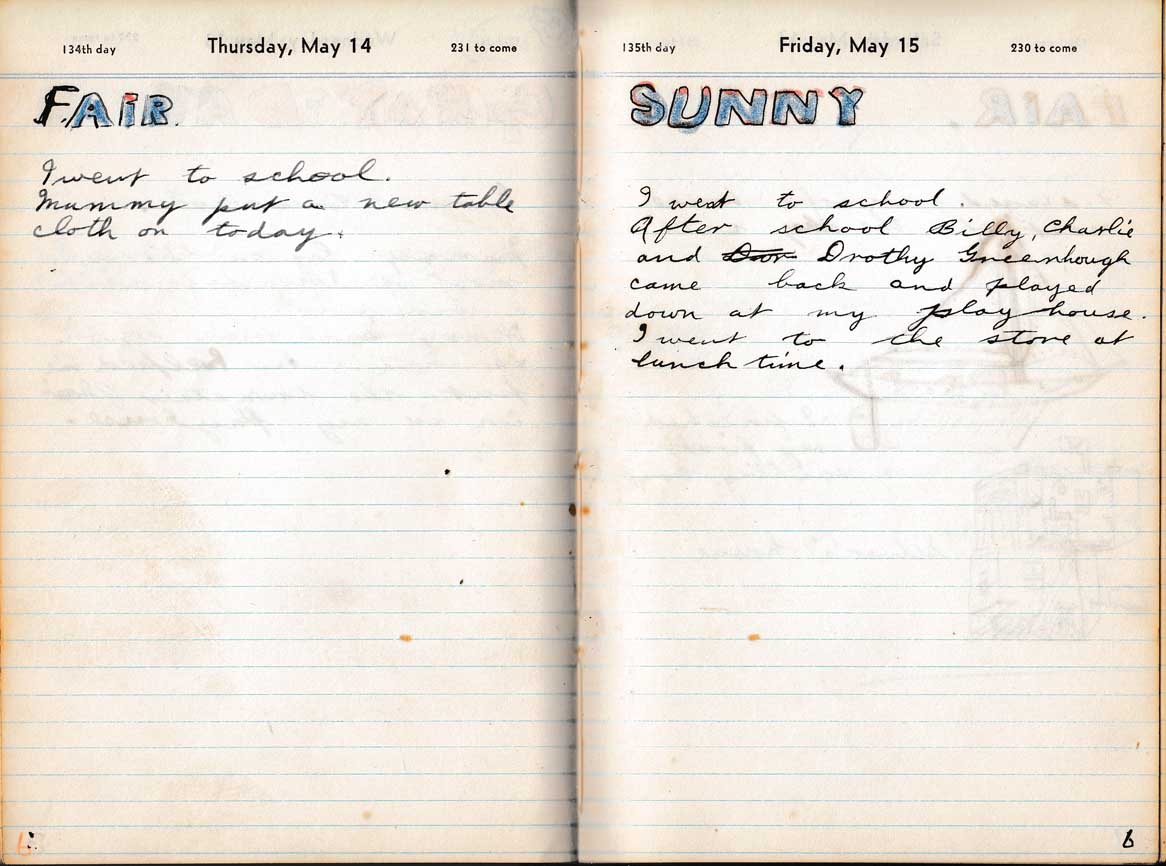 134th day Thursday, May 14 231 to come
FAIR.
I went to school.
Mummy put a new table
cloth on today.
6
135th day Friday, May 15 230 to come
SUNNY
I went to school.
After school Billy, Charlie
and Dor Drothy Greenhough
came back and played
down at my play house.
I went to the store at
lunch time.
6